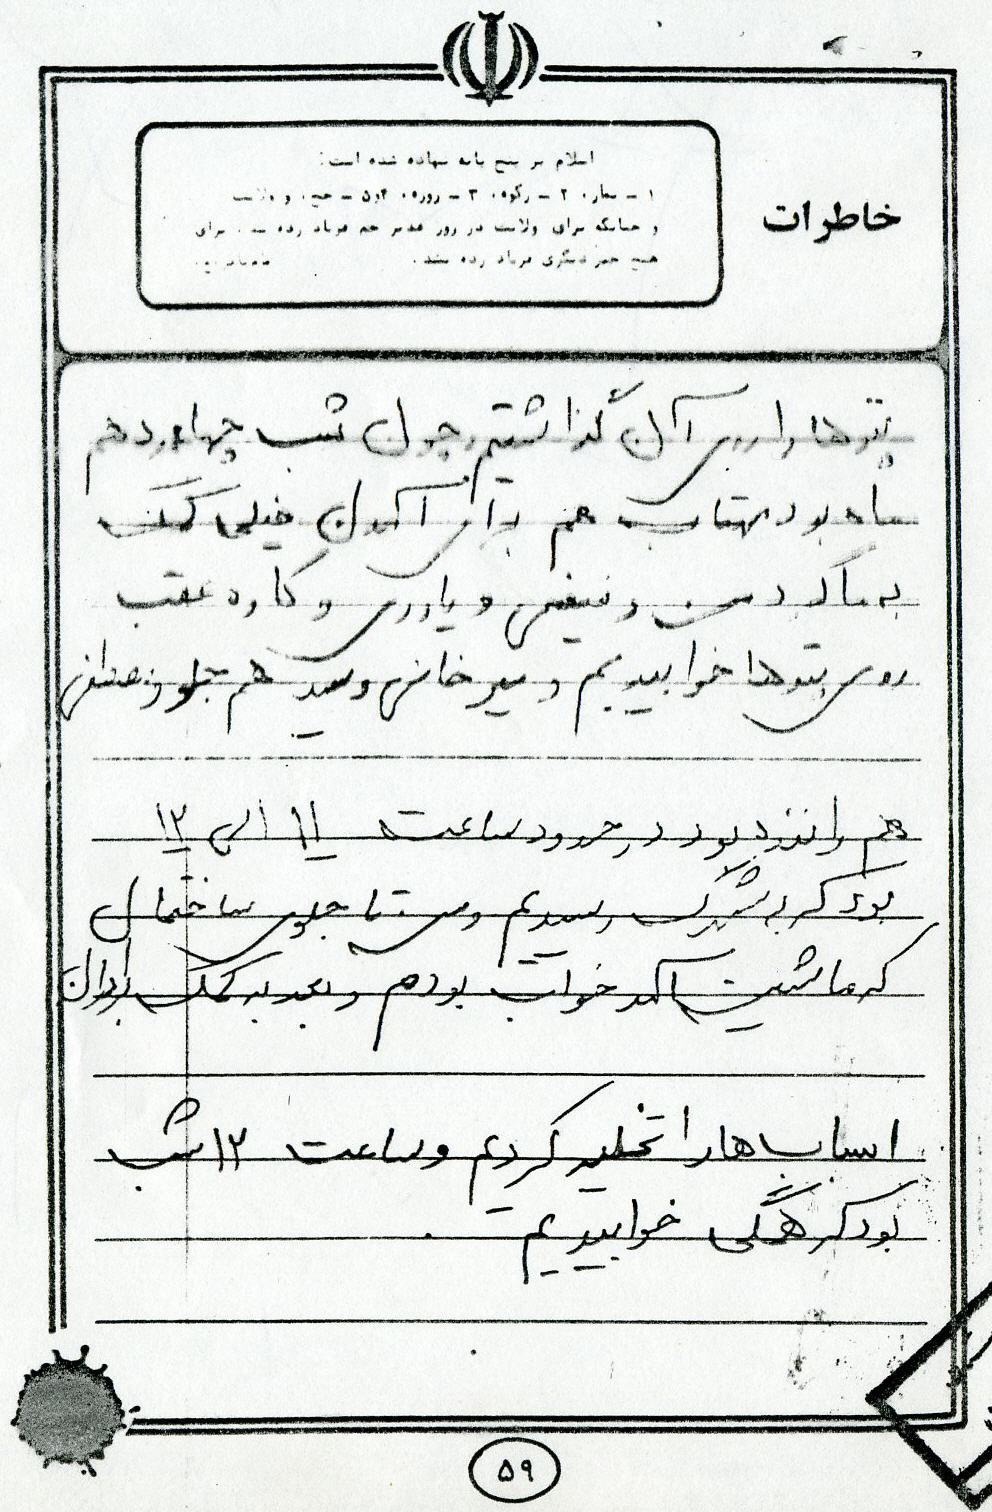 خاطرات
اسلام بر پنج پایه نهاده شده است:
۱ - نماز، ۲ - زکوة، ۳ - روزه، ۴و۵ - حج، و ولایت
و چنانکه برای ولایت در روز غدیر خم فریاد زده شد، برای
هیچ چیز دیگری فریاد زده نشد.
پتوها را روی آن گذاشتیم و چون شب چهاردهم
ماه بود مهتاب هم برای آمدن خیلی کمک
به ما کرد من و فیضی و یاوری و کاوه عقب
روی پتوها خوابیدیم و میرخانی و سید هم جلو و مصطفی
هم راننده بود در حدود ساعت ۱۱ الی ۱۲
بود که به شهرک رسیدیم و من تا جلوی ساختمان
که ماشین آمد خواب بودم و بعد به کمک برادران
اسباب‌ها را تخلیه کردیم و ساعت ۱۲ شب
بود که همگی خوابیدیم.
۵۹